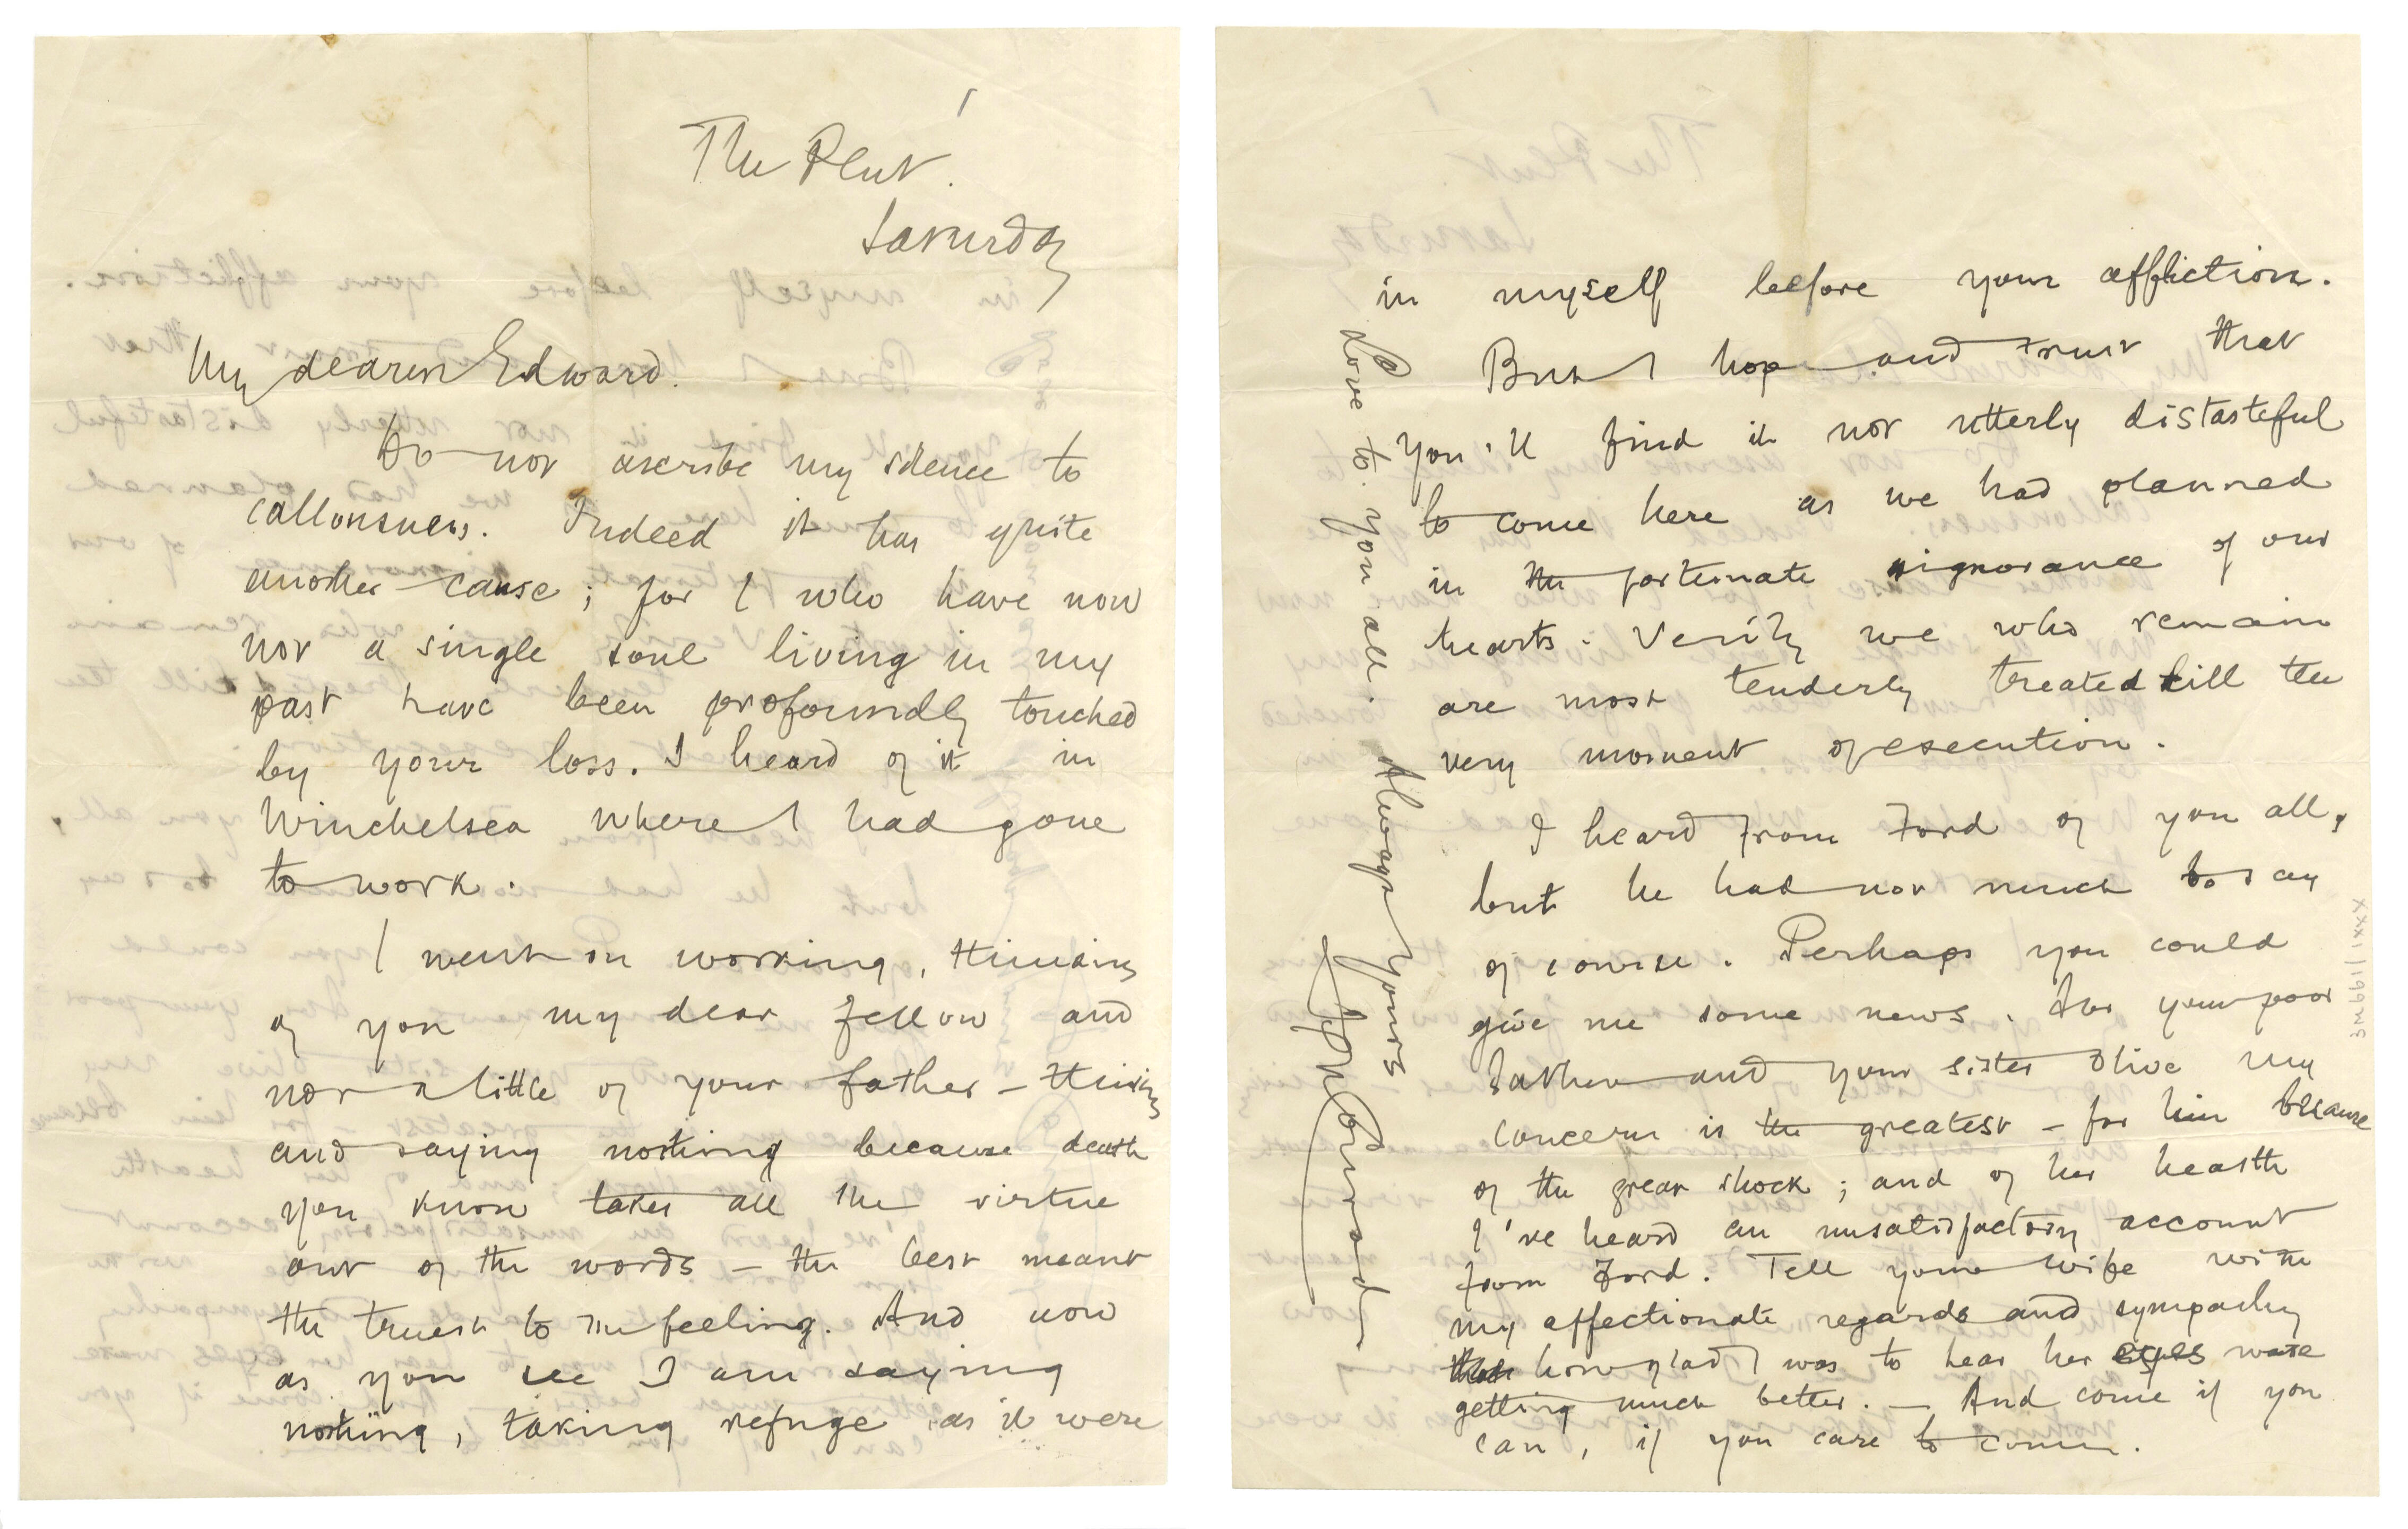 The Pent.
Saturday
My dearest Edward.
Do not ascribe my silence to
callousness. Indeed it has quite
another cause; for I who have now
not a single soul living in my
past have been profoundly touched
by your loss. I heard of it in
Winchelsea where I had gone
to work.
I went on working, thinking
of you my dear fellow and
not a little of your father – thinking
and saying nothing because death
you know takes all the virtue
out of the words – the best meant
the truest to the feeling. And now
as you see I am saying
nothing, taking refuge as it were
in myself before your affliction.
But I hope and trust that
you'll find it not utterly distasteful
to come here as we had planned
in the fortunate ignorance of our
hearts. Verily we who remain
are most tenderly treated till the
very moment of execution.
I heard from Ford of you all,
but he had not much to say
of course. Perhaps you could
give me some news. For your poor
father and your sister Olive my
concern is the greatest – for him because
of the great shock; and of her health
I've heard an unsatisfactory account
from Ford. Tell your wife with
my affectionate regards and sympathy
how glad I was to hear her eyes were
getting much better. – And come if you
can, if you care to come.
Love to you all. Always yours
Jph Conrad
3M661/1xxX